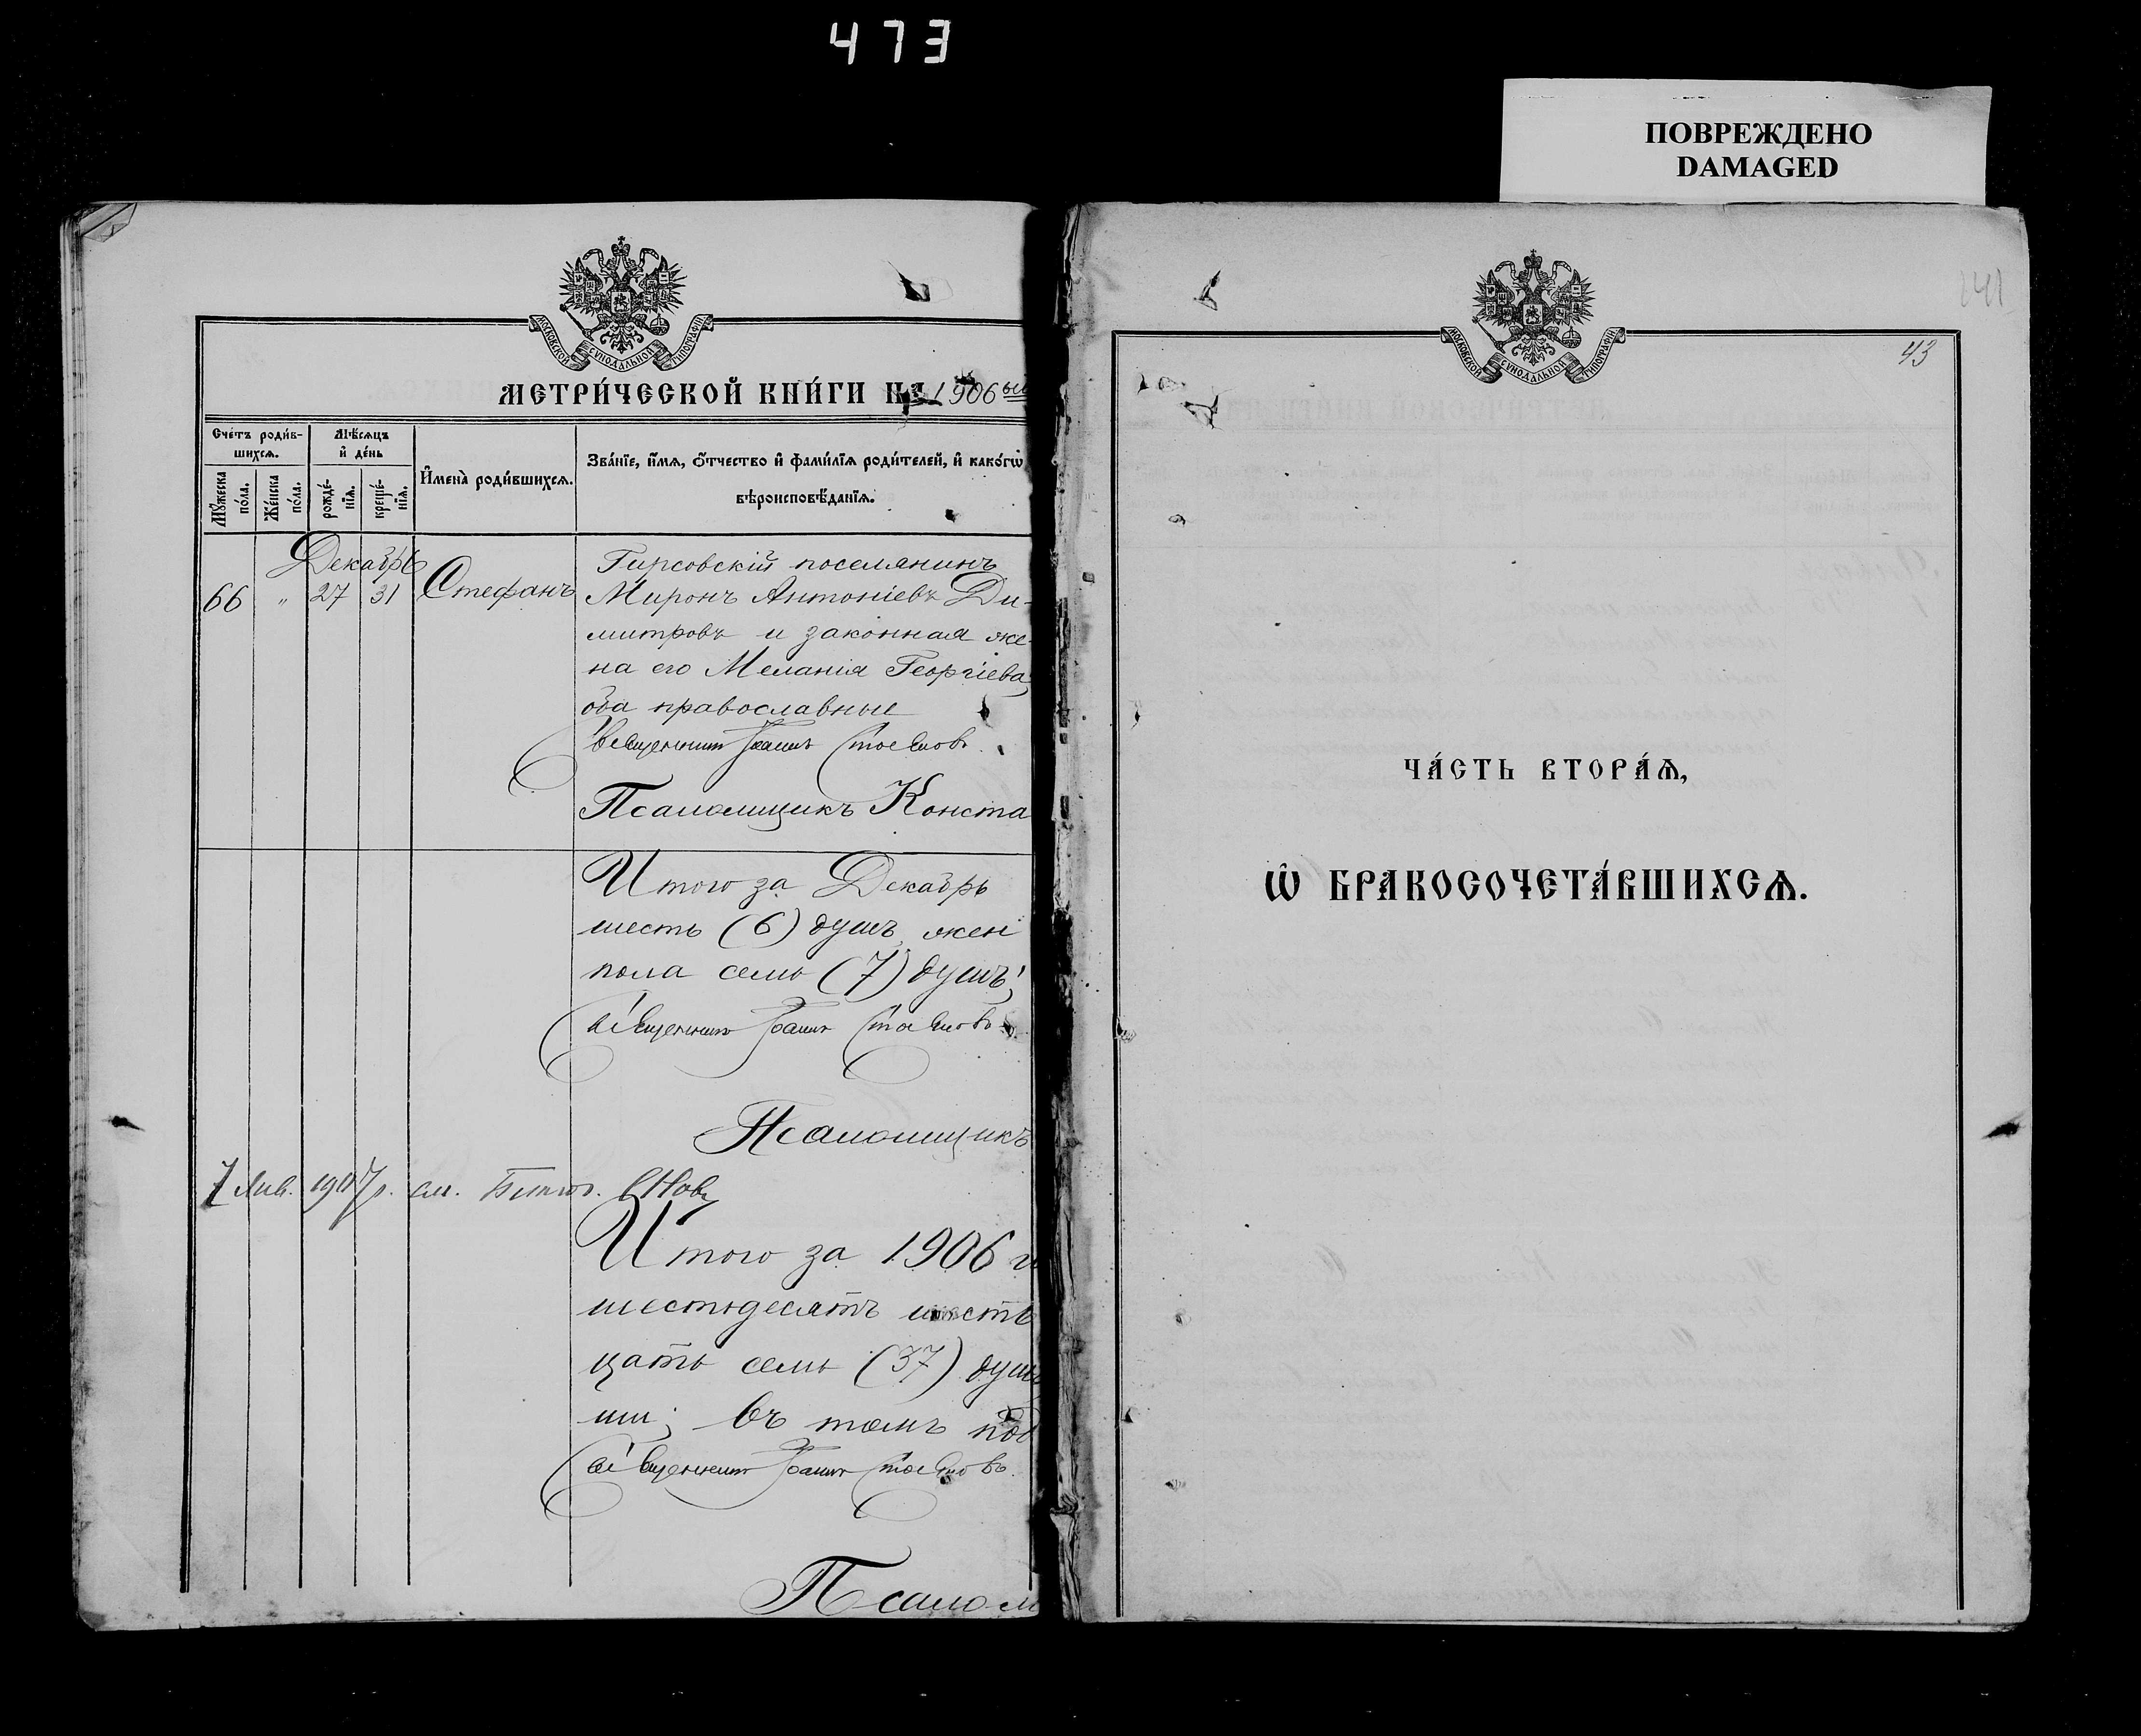 473
ПОВРЕЖДЕНО
DAMAGED
МОСКОВСКОЙ СѴНОДАЛЬНОЙ ТИПОГРАФІИ
МЕТРИ́ЧЕСКОЙ КНИ́ГИ НА 1906 ый
Сче́тъ роди́в-
шихсѧ.
Мꙋ́жеска по́ла.
Же́нска по́ла.
Мѣ́сѧцъ
и҆ де́нь
рожде́-
нїѧ.
креще́-
нїѧ.
И҆мена̀ роди́вшихсѧ.
Зва́нїе, и҆́мѧ, ѻ҆́тчество и҆ фами́лїѧ роди́телей, и҆ како́гѡ
вѣроисповѣ́данїѧ.
Декабрь
66 " 27 31 Стефанъ
Гирсовскій поселянинъ
Миронъ Антоніевъ Ди-
митровъ и законная же-
на его Меланія Георгіева,
оба православные
Священникъ Іоаннъ
Псаломщикъ Конста
Итого за Декабрь
шесть (6) душъ, жен
пола семь (7) душъ;
Священникъ Іоаннъ
Псаломщикъ
Янв. 1907 г.
Итого за 1906 г
шестьдесятъ шесть
цать семь (37) душъ
ши; въ томъ под
Священникъ Іоаннъ
Псалом
МОСКОВСКОЙ СѴНОДАЛЬНОЙ ТИПОГРАФІИ
141
43
ЧА́СТЬ ВТОРА́Ѧ,
Ѡ҆ БРАКОСОЧЕТА́ВШИХСѦ.